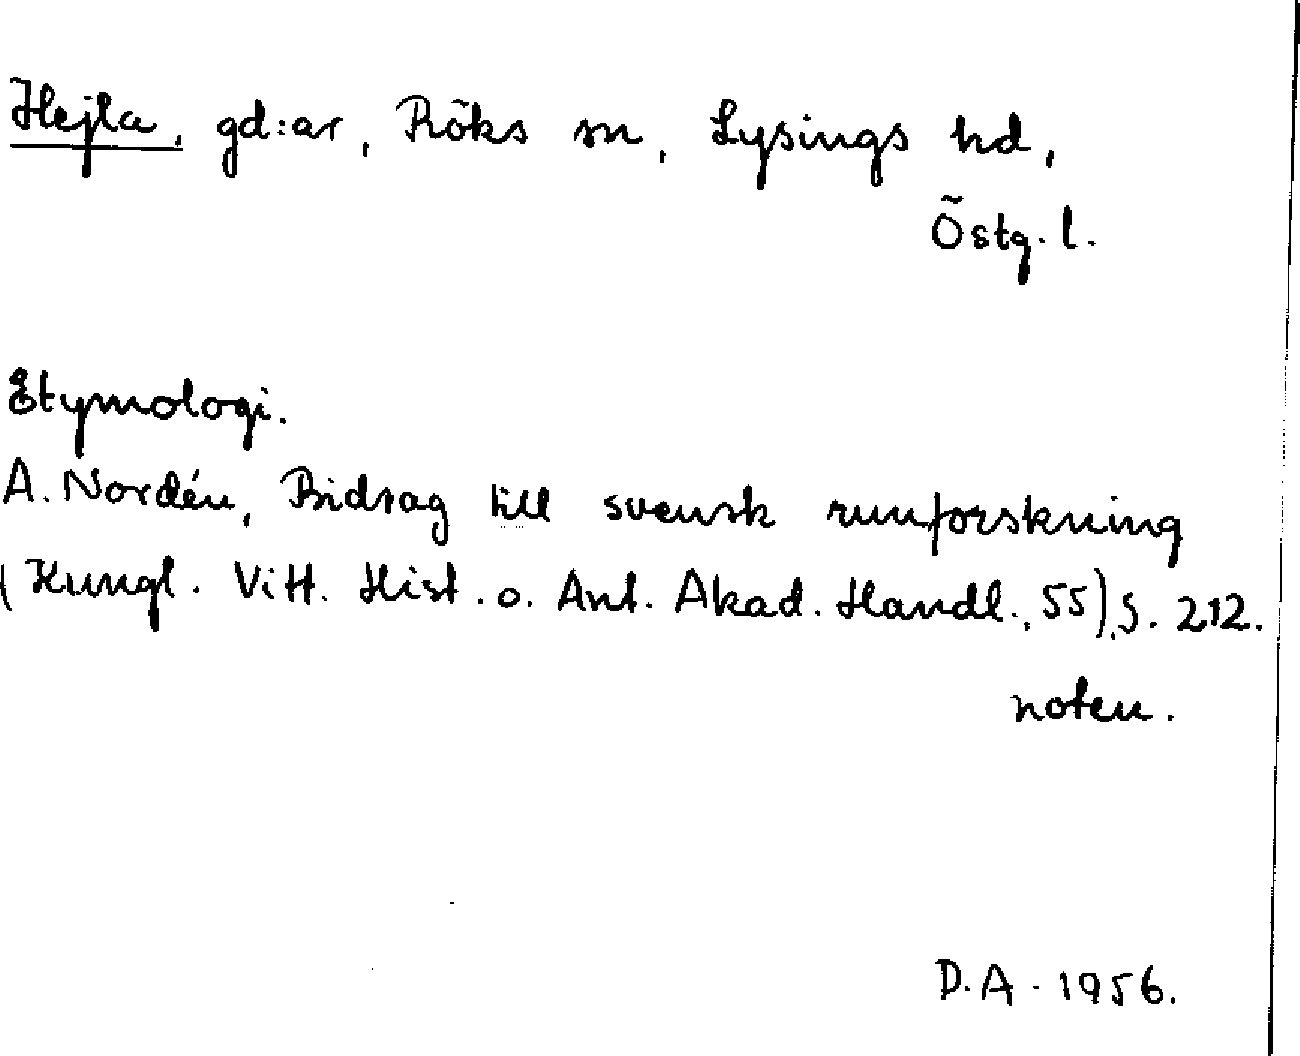 Hejla, gd:ar, Röks sn, Lysings hd,
Östg. l.
Etymologi.
A. Nordén, Bidrag till svensk runforskning
(Kungl. Vitt. Hist. o. Ant. Akad. Handl., 55), s. 212.
noten.
D.A. 1956.